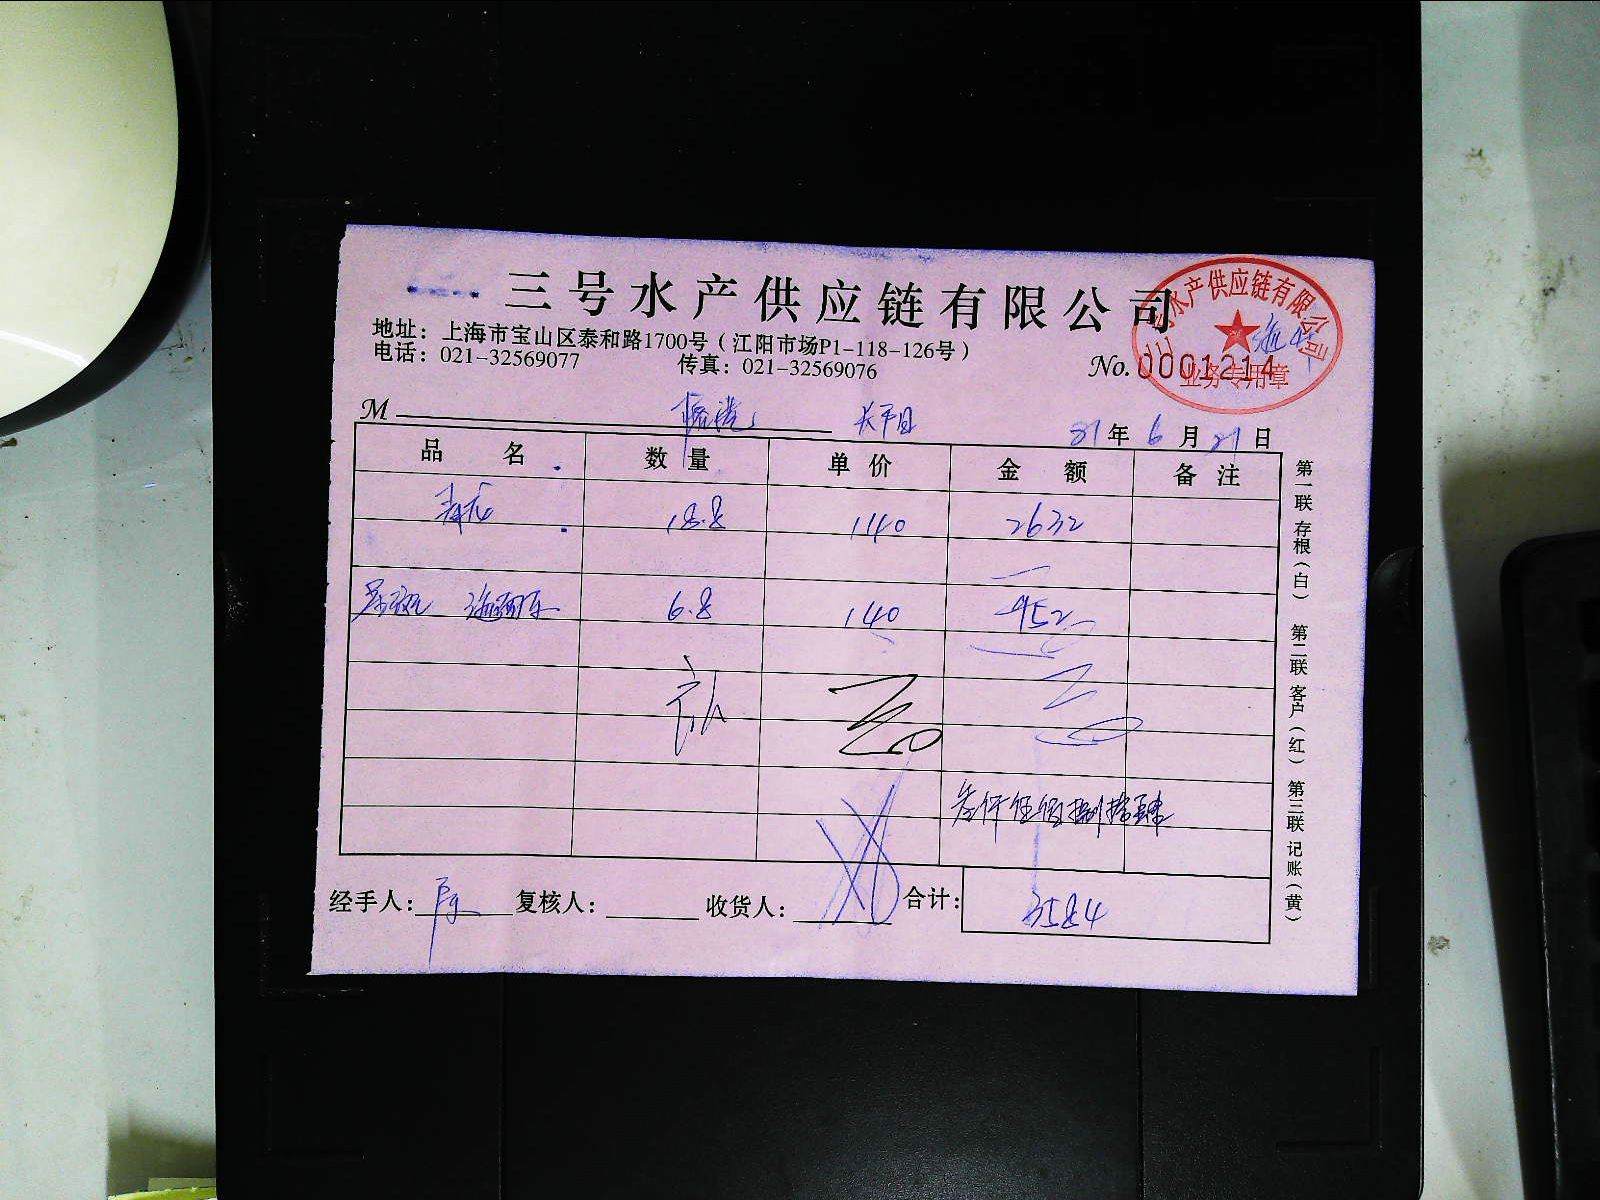 三号水产供应链有限公司
三号水产供应链有限公司
业务专用章
地址：上海市宝山区泰和路1700号（江阳市场P1-118-126号）
电话：021-32569077 传真：021-32569076
No. 0001214
M 年 6 月 日
品 名 数 量 单 价 金 额 备 注
青龙 18.8 140 2632
6.8 140 952
叁仟伍佰捌拾肆
经手人： 复核人： 收货人： 合计： 3584
第一联 存根（白） 第二联 客户（红） 第三联 记账（黄）